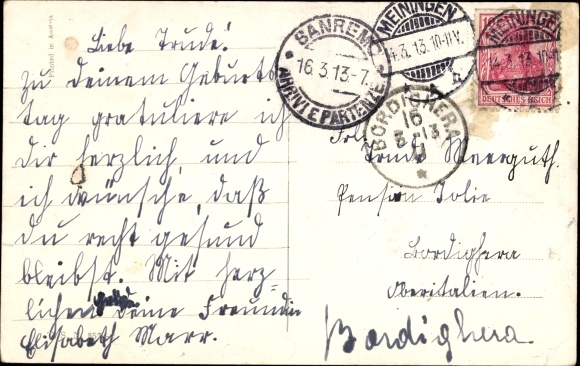 Liebe Trude!
Zu deinem Geburts-
tag gratuliere ich
dir herzlich, und
ich wünsche, daß
du recht gesund
bleibst. Mit herz-
lichen deine Freundin
Elisabeth Marr.
Printed in Austria
SANREMO
16.3.13-7
ARRIVI E PARTENZE
MEININGEN
14.3.13.10-11V.
MEININGEN
14.3.13.10-11V.
DEUTSCHES REICH
BORDIGHERA
16
3-13
11
Frl.
Trude Meerguth.
Pension Jolie
Bordighera
Oberitalien.
Bordighera.